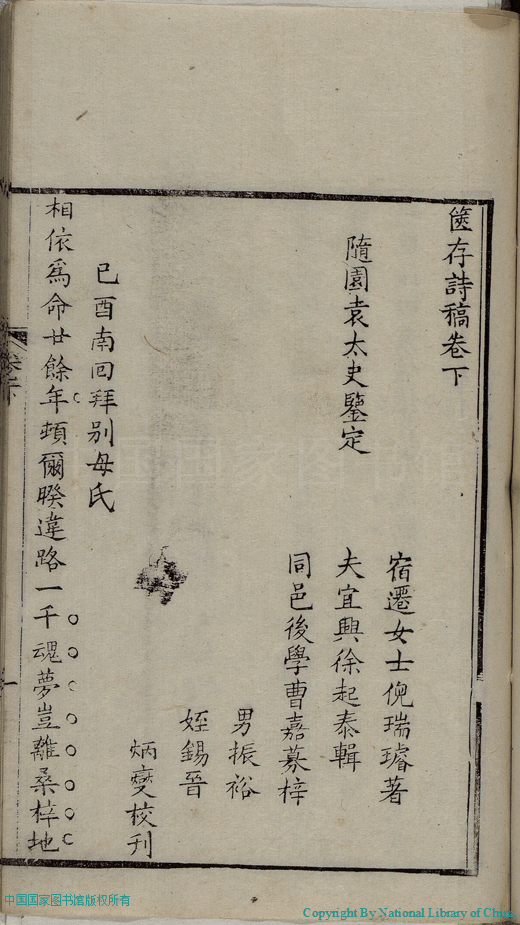 篋存詩稿卷下
隨園袁太史鑒定
宿遷女士倪瑞璿著
夫宜興徐起泰輯
同邑後學曹嘉募梓
男振裕
姪錫晉
炳燮校刊
己酉南回拜別母氏
相依為命廿餘年頓爾睽違路一千魂夢豈離桑梓地
一
中国国家图书馆版权所有
Copyright By National Library of China